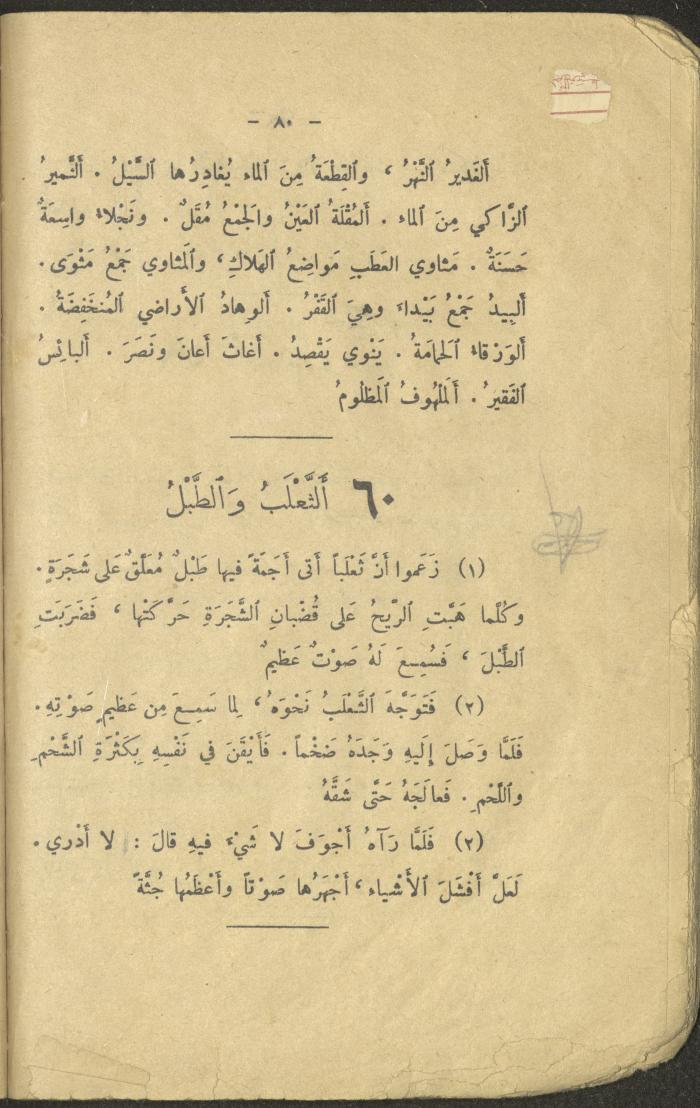 - ٨٠ -
أَلغَديرُ ٱلنَّهْرُ ، وٱلقِطْعَةُ مِنَ ٱلماءِ يُغادِرُها ٱلسَّيْلُ . أَلنَّميرُ
ٱلزَّاكي مِنَ ٱلماءِ . أَلمُقْلَةُ ٱلعَيْنُ وٱلجَمْعُ مُقَلٌ . ونَجْلاءُ واسِعَةٌ
حَسَنَةٌ . مَثاوي ٱلعَطَبِ مَواضِعُ ٱلهَلاكِ ، وٱلمَثاوي جَمْعُ مَثْوَى .
أَلبِيدُ جَمْعُ بَيْداءَ وهِيَ ٱلقَفْرُ . أَلوِهادُ ٱلأَراضي ٱلمُنخَفِضَةُ .
أَلوَرْقاءُ ٱلحَمامَةُ . يَنْوي يَقْصِدُ . أَغاثَ أَعانَ ونَصَرَ . أَلبائِسُ
ٱلفَقيرُ . أَلمَلْهُوفُ ٱلمَظْلومُ
٦٠ أَلثَّعْلَبُ وَٱلطَّبْلُ
(١) زَعَموا أَنَّ ثَعْلَباً أَتى أَجَمَةً فيها طَبْلٌ مُعَلَّقٌ عَلى شَجَرَةٍ .
وكُلَّما هَبَّتِ ٱلرِّيحُ عَلى قُضْبانِ ٱلشَّجَرَةِ حَرَّكَتْها ، فَضَرَبَتِ
ٱلطَّبْلَ ، فَسُمِعَ لَهُ صَوْتٌ عَظيمٌ
(٢) فَتَوَجَّهَ ٱلثَّعْلَبُ نَحْوَهُ ، لِما سَمِعَ مِن عَظيمِ صَوْتِهِ .
فَلَمَّا وَصَلَ إِلَيهِ وَجَدَهُ ضَخْماً . فَأَيْقَنَ في نَفْسِهِ بِكَثْرَةِ ٱلشَّحْمِ
وٱللَّحْمِ . فَعالَجَهُ حَتَّى شَقَّهُ
(٢) فَلَمَّا رَآهُ أَجْوَفَ لا شَيْءَ فيهِ قالَ : لا أَدْري .
لَعَلَّ أَفْشَلَ ٱلأَشْياءِ ، أَجْهَرُها صَوْتاً وأَعْظَمُها جُثَّةً